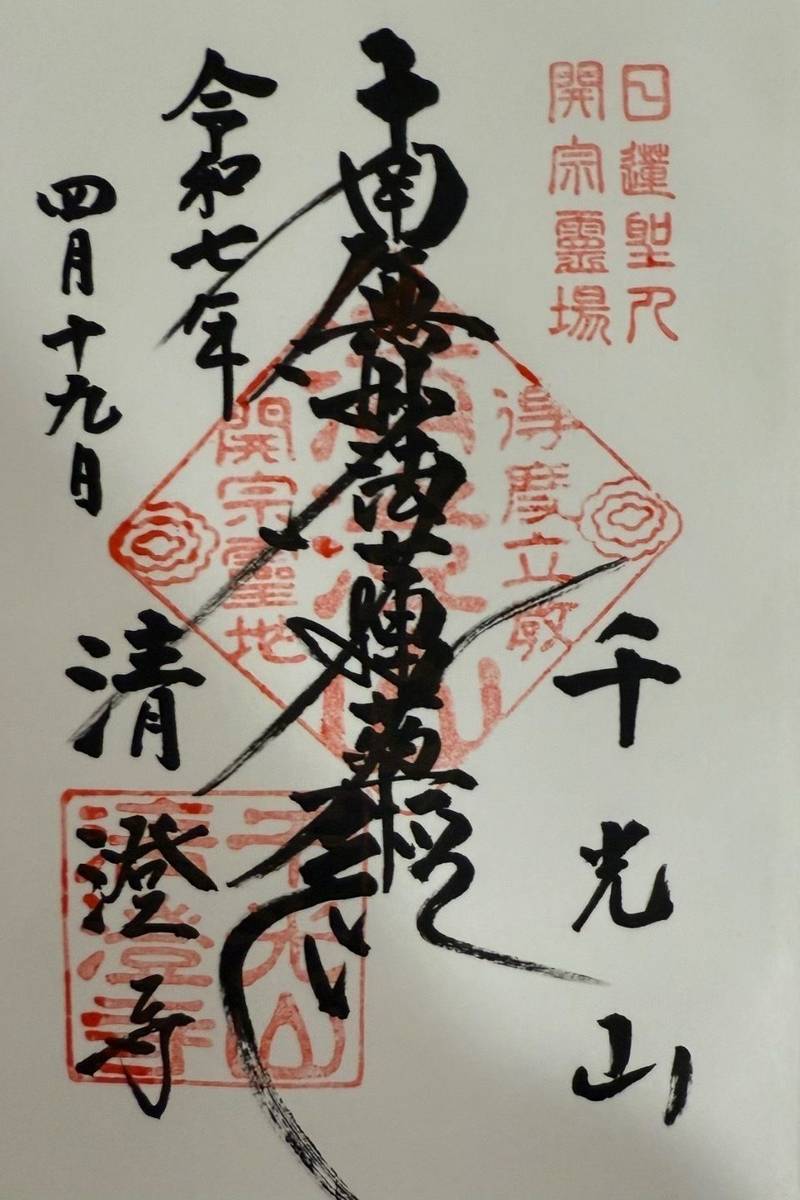 日蓮聖人
開宗霊場
千光山
得度立教
南無妙法蓮華経
開宗霊地
令和七年
四月十九日
清澄寺
千光山
清澄寺